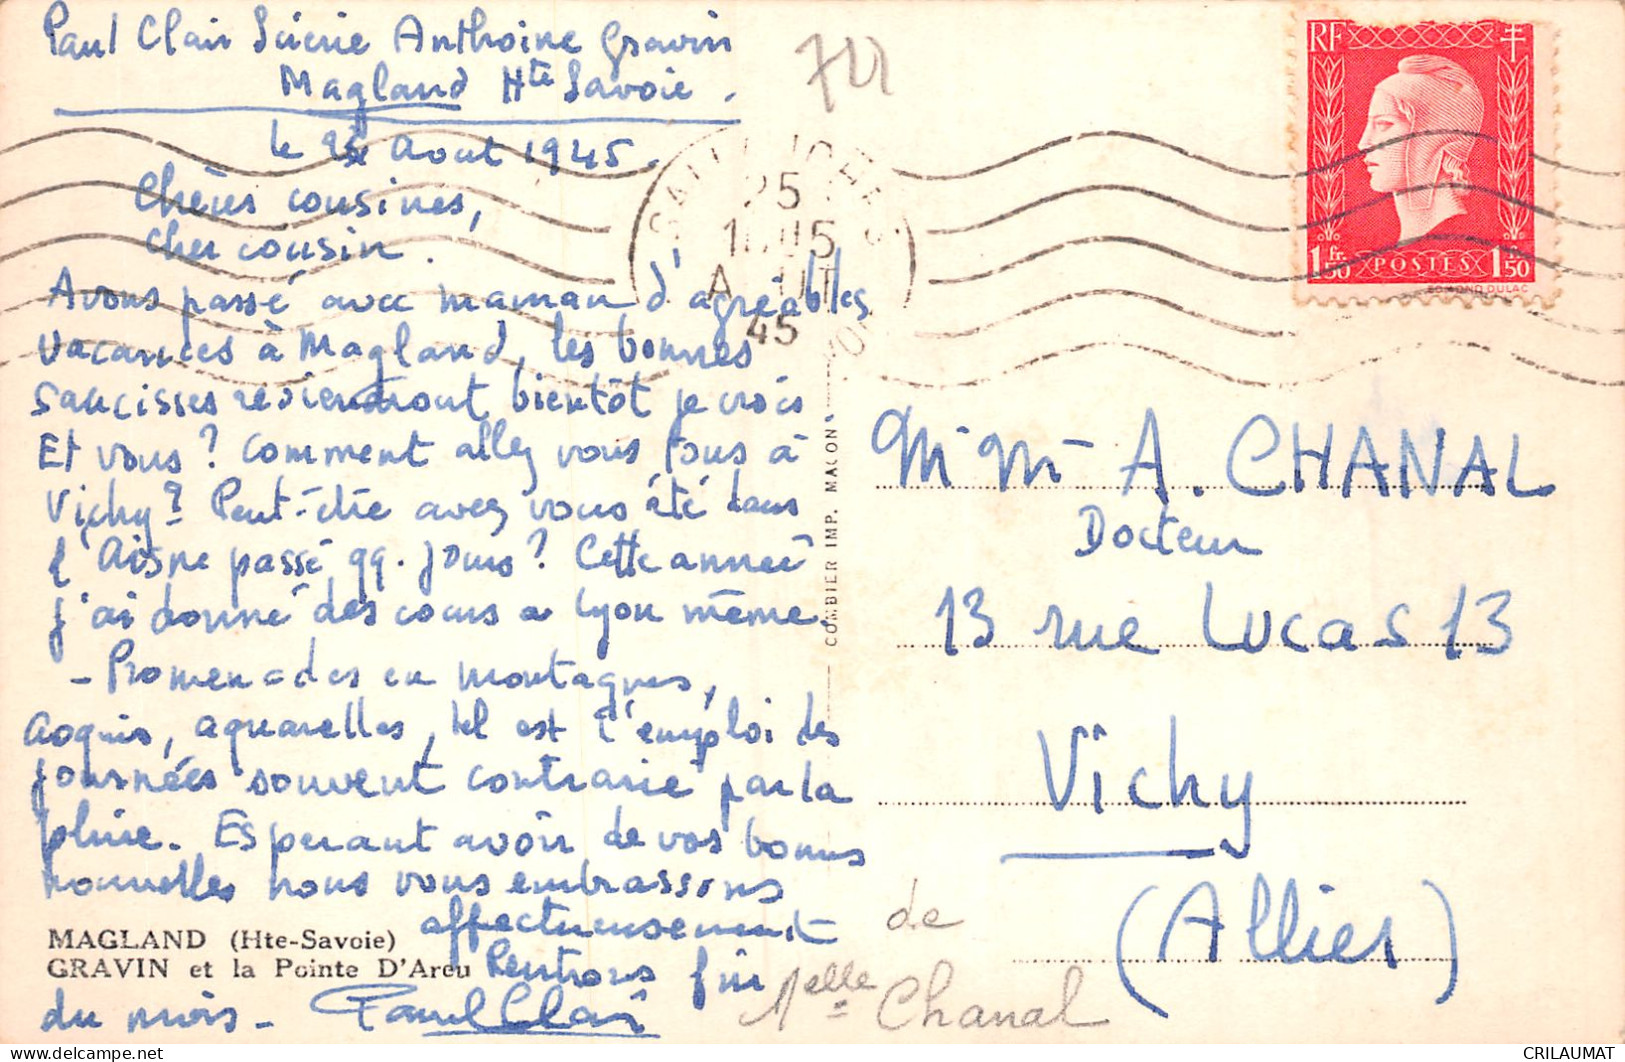 Paul Clair Scierie Anthoine Gravin
Magland Hte Savoie.
le Août 1945.
Chères cousines,
Cher cousin.
Avons passé avec maman d'agréables
vacances à Magland, les bonnes
saucisses reviendront bientôt je crois
Et vous? Comment allez vous tous à
Vichy? Peut-être avez vous été dans
l'Aisne passé qq. jours? Cette année
j'ai donné des cours à Lyon même.
- Promenades en montagnes,
croquis, aquarelles, tel est l'emploi des
journées souvent contrarié par la
pluie. Espérant avoir de vos bonnes
nouvelles nous vous embrassons
affectueusement
Rentrons fin
du mois - Paul Clair
MAGLAND (Hte-Savoie)
GRAVIN et la Pointe D'Areu
COMBIER IMP. MACON
SALLANCHES
25
AOUT
45
RF
1fr.50 POSTES 1fr.50
EDMOND DULAC
A. CHANAL
Docteur
13 rue Lucas 13
Vichy
(Allier)
de
Melle Chanal
CRILAUMAT